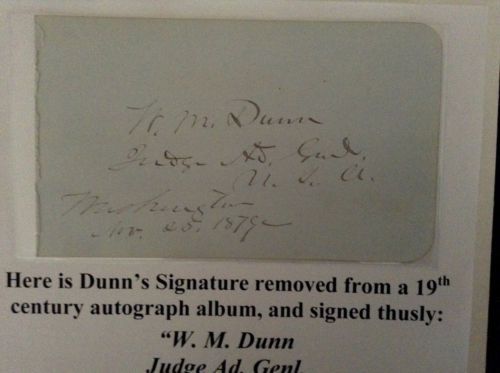 W. M. Dunn
Judge Ad. Genl.
U. S. A.
Washington
Nov. 25. 1879
Here is Dunn's Signature removed from a 19th
century autograph album, and signed thusly:
"W. M. Dunn
Judge Ad. Genl